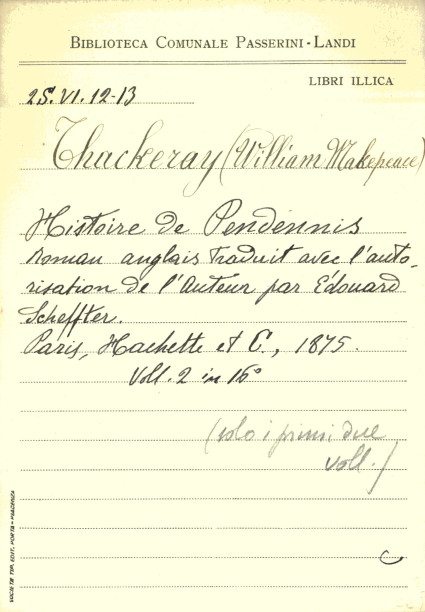 BIBLIOTECA COMUNALE PASSERINI-LANDI
LIBRI ILLICA
2S.VI.12-13
Thackeray (William Makepeace)
Histoire de Pendennis
Roman anglais traduit avec l'auto-
risation de l'Auteur par Édouard
Scheffter.
Paris, Hachette et C., 1875.
Voll. 2 in 16°
(solo i primi due
voll.)
SOCIETÀ TIP. EDIT. PORTA - PIACENZA
C